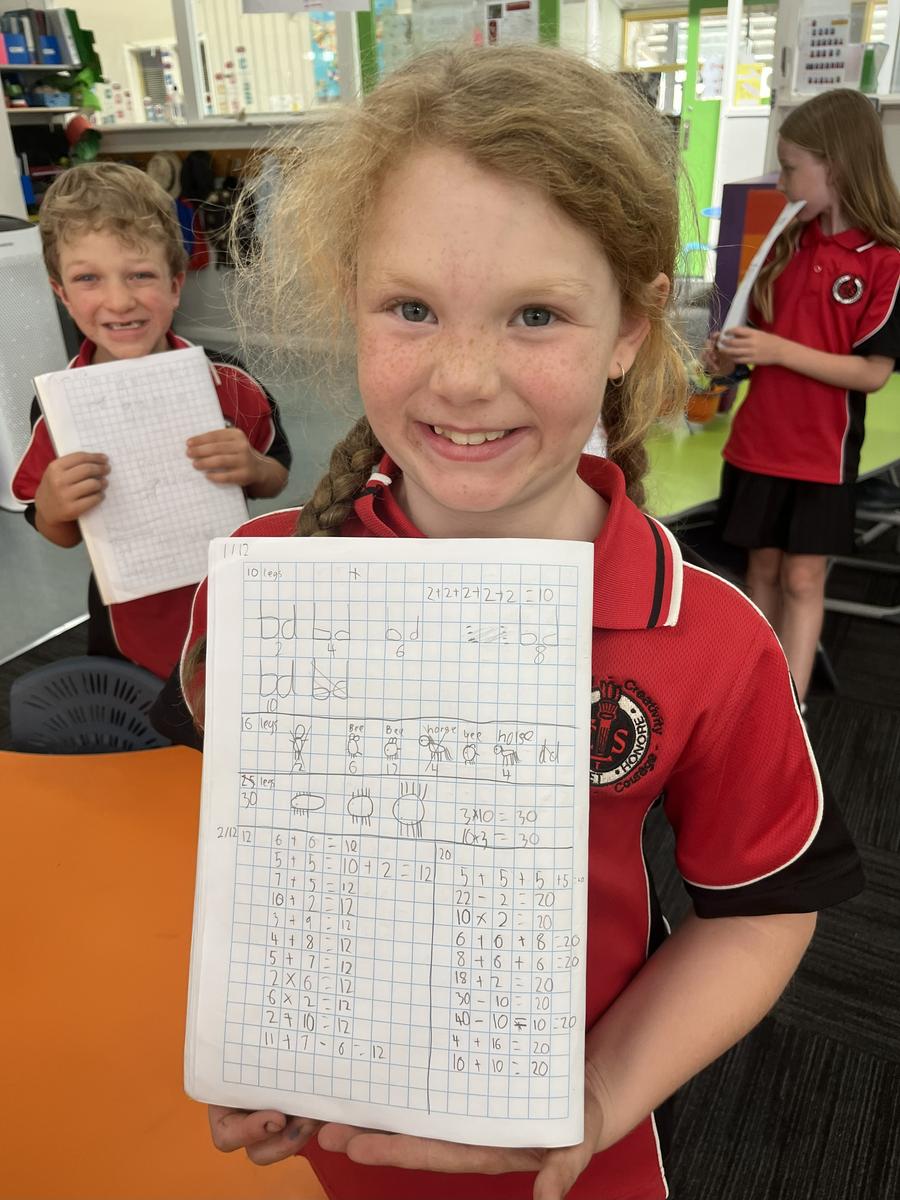 1/12
10 legs +
2+2+2+2+2 = 10
bd bd bd bd
2 4 6 8
bd
10
16 legs Bee Bee horse bee horse
2 6 12 4 4
legs
30
3×10 = 30
10×3 = 30
2/12 12
6 + 6 = 12
5 + 5 = 10 + 2 = 12
7 + 5 = 12
10 + 2 = 12
3 + 9 = 12
4 + 8 = 12
5 + 7 = 12
2 × 6 = 12
6 × 2 = 12
2 + 10 = 12
11 + 7 - 6 = 12
20
5 + 5 + 5 +5
22 - 2 = 20
10 × 2 = 20
6 + 6 + 8 =20
8 + 6 + 6 =20
18 + 2 = 20
30 - 10 = 20
40 - 10 10 =20
4 + 16 = 20
10 + 10 = 20
Creativity
HONORE
Courage